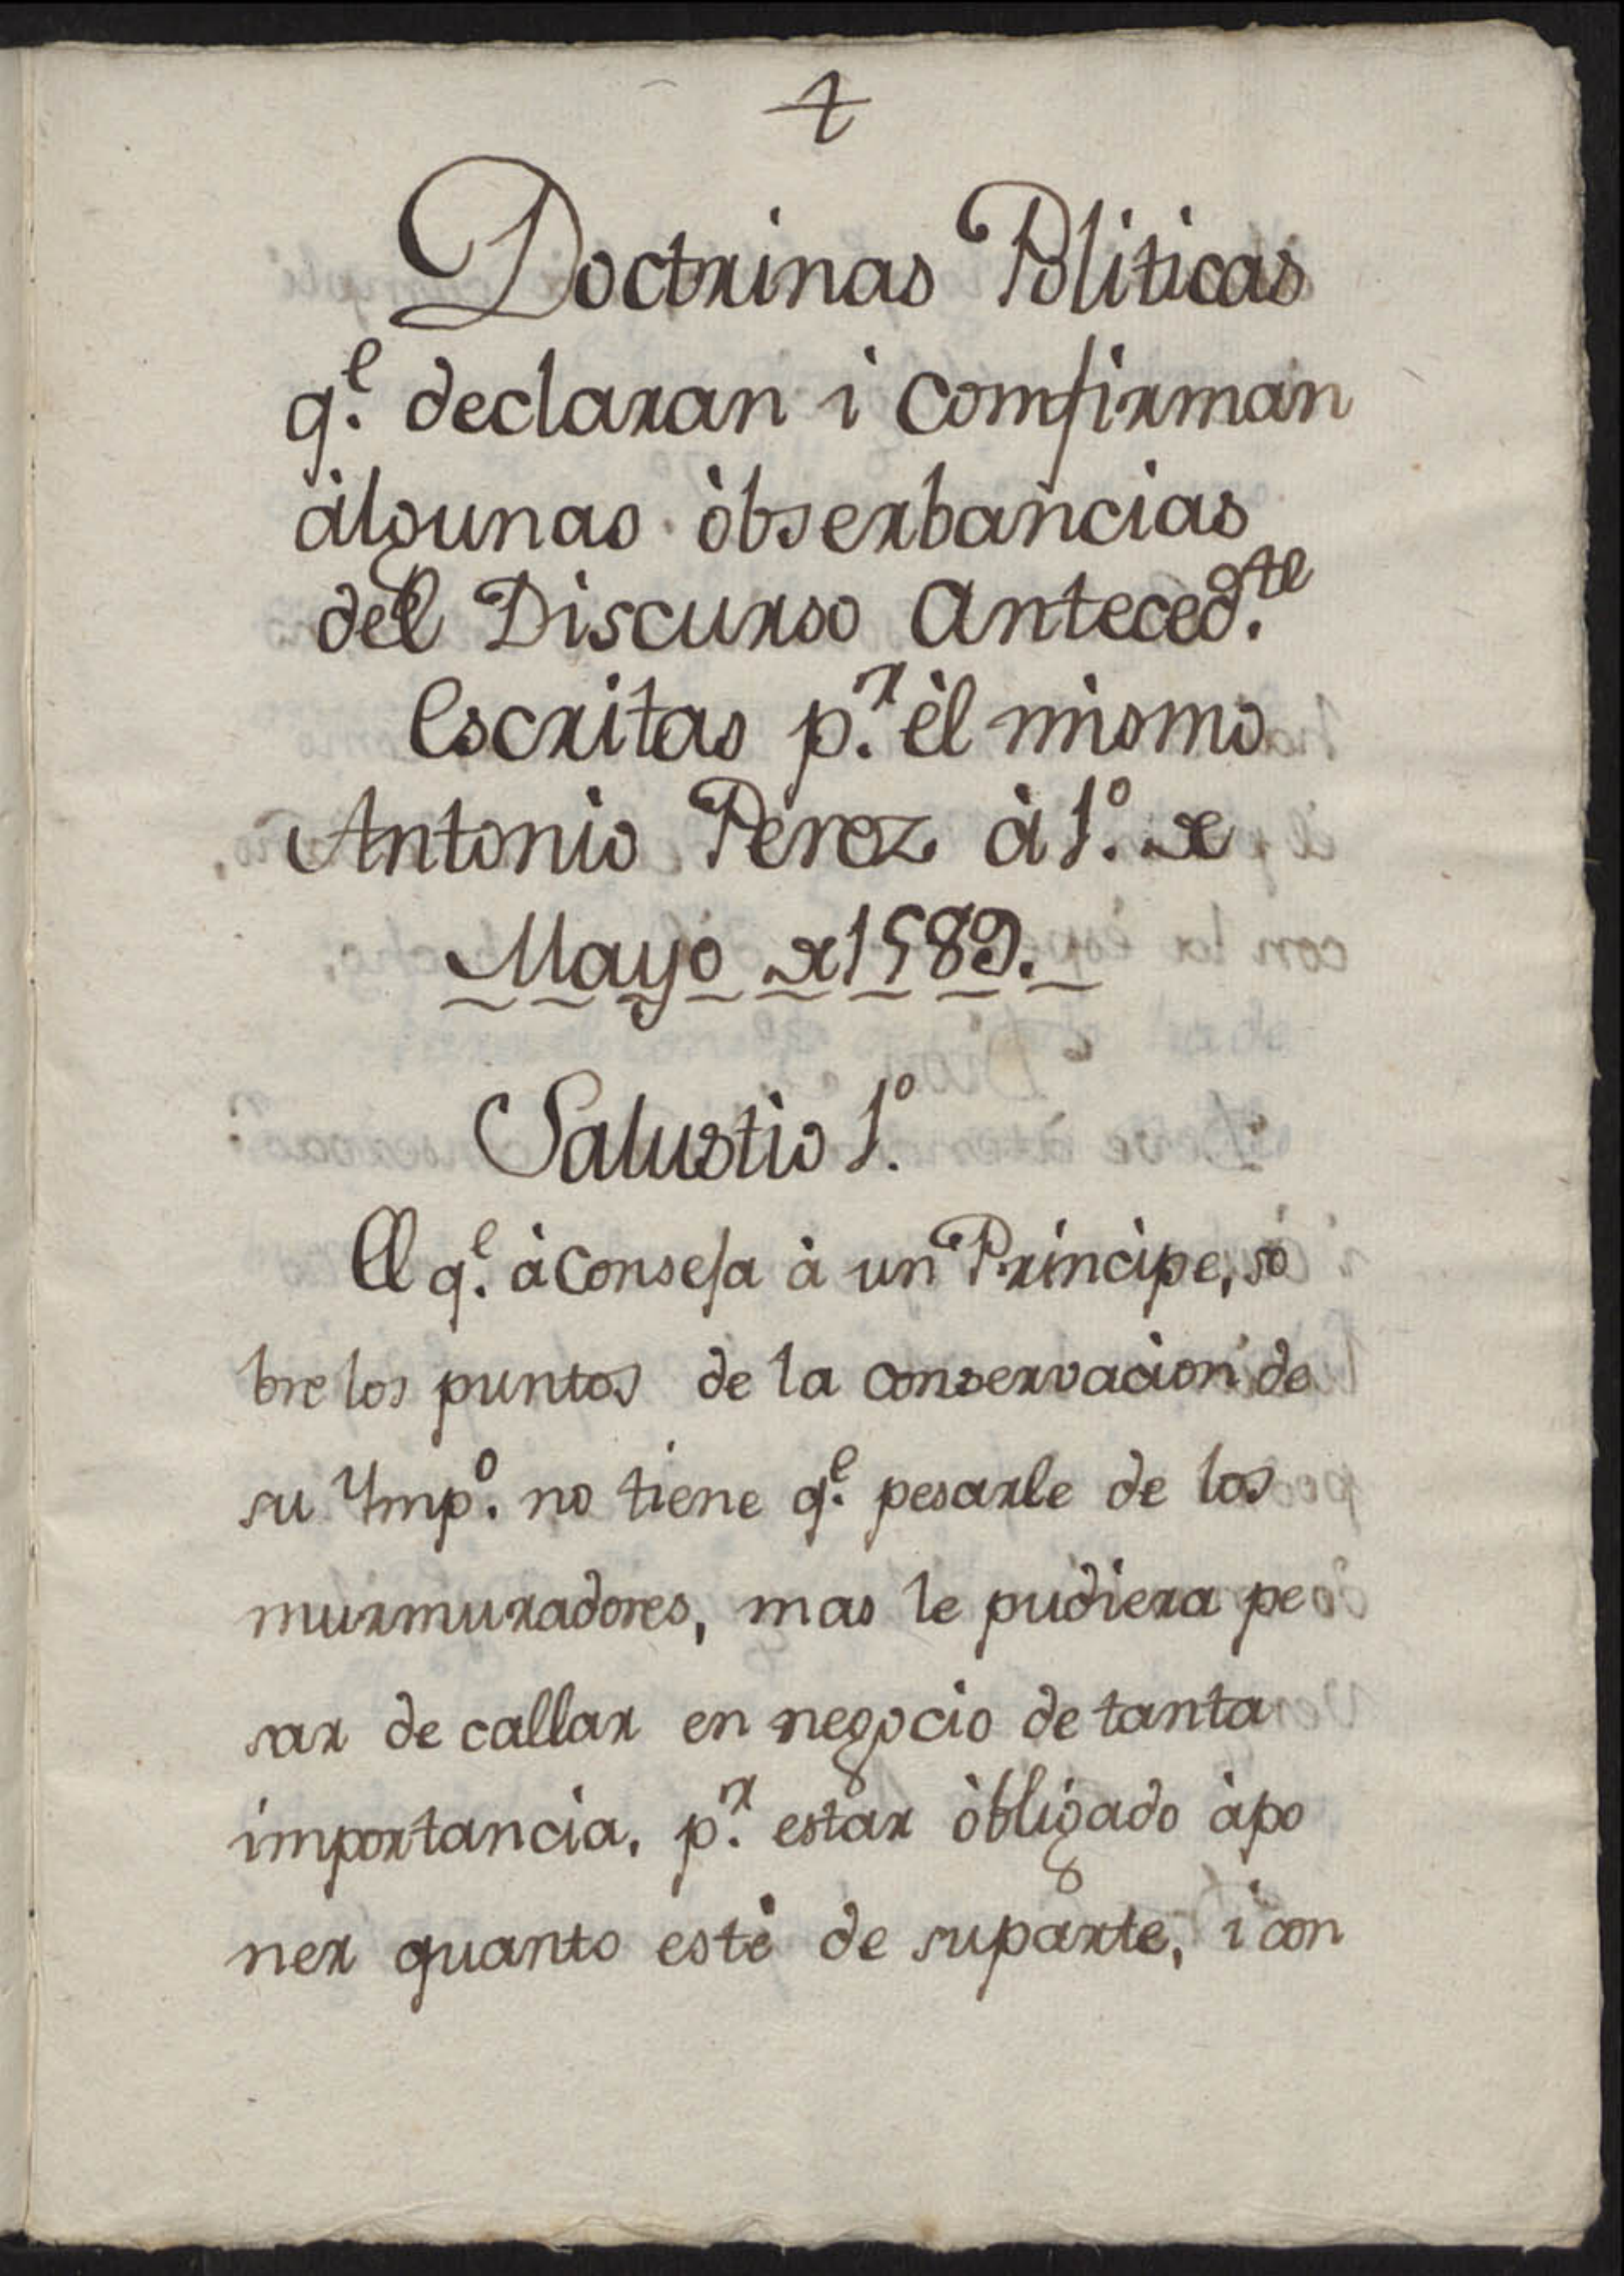 Doctrinas Politicas
q.e declaran i comfirman
àlgunas òbserbancias
del Discurso Anteced.te
Escritas p.r èl mismo
Antonio Perez à 1.o de
Mayo de 1589.
Salustio 1.o
El q.e àconseja à un Principe, so
bre los puntos de la conservacion de
su Ymp.o no tiene q.e pesarle de los
murmuradores, mas le pudiera pe
sar de callar en negocio de tanta
importancia, p.r estar òbligado àpo
ner quanto estè de suparte, i con